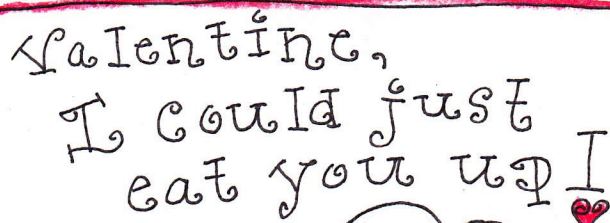 Valentine,
I could just
eat you up!